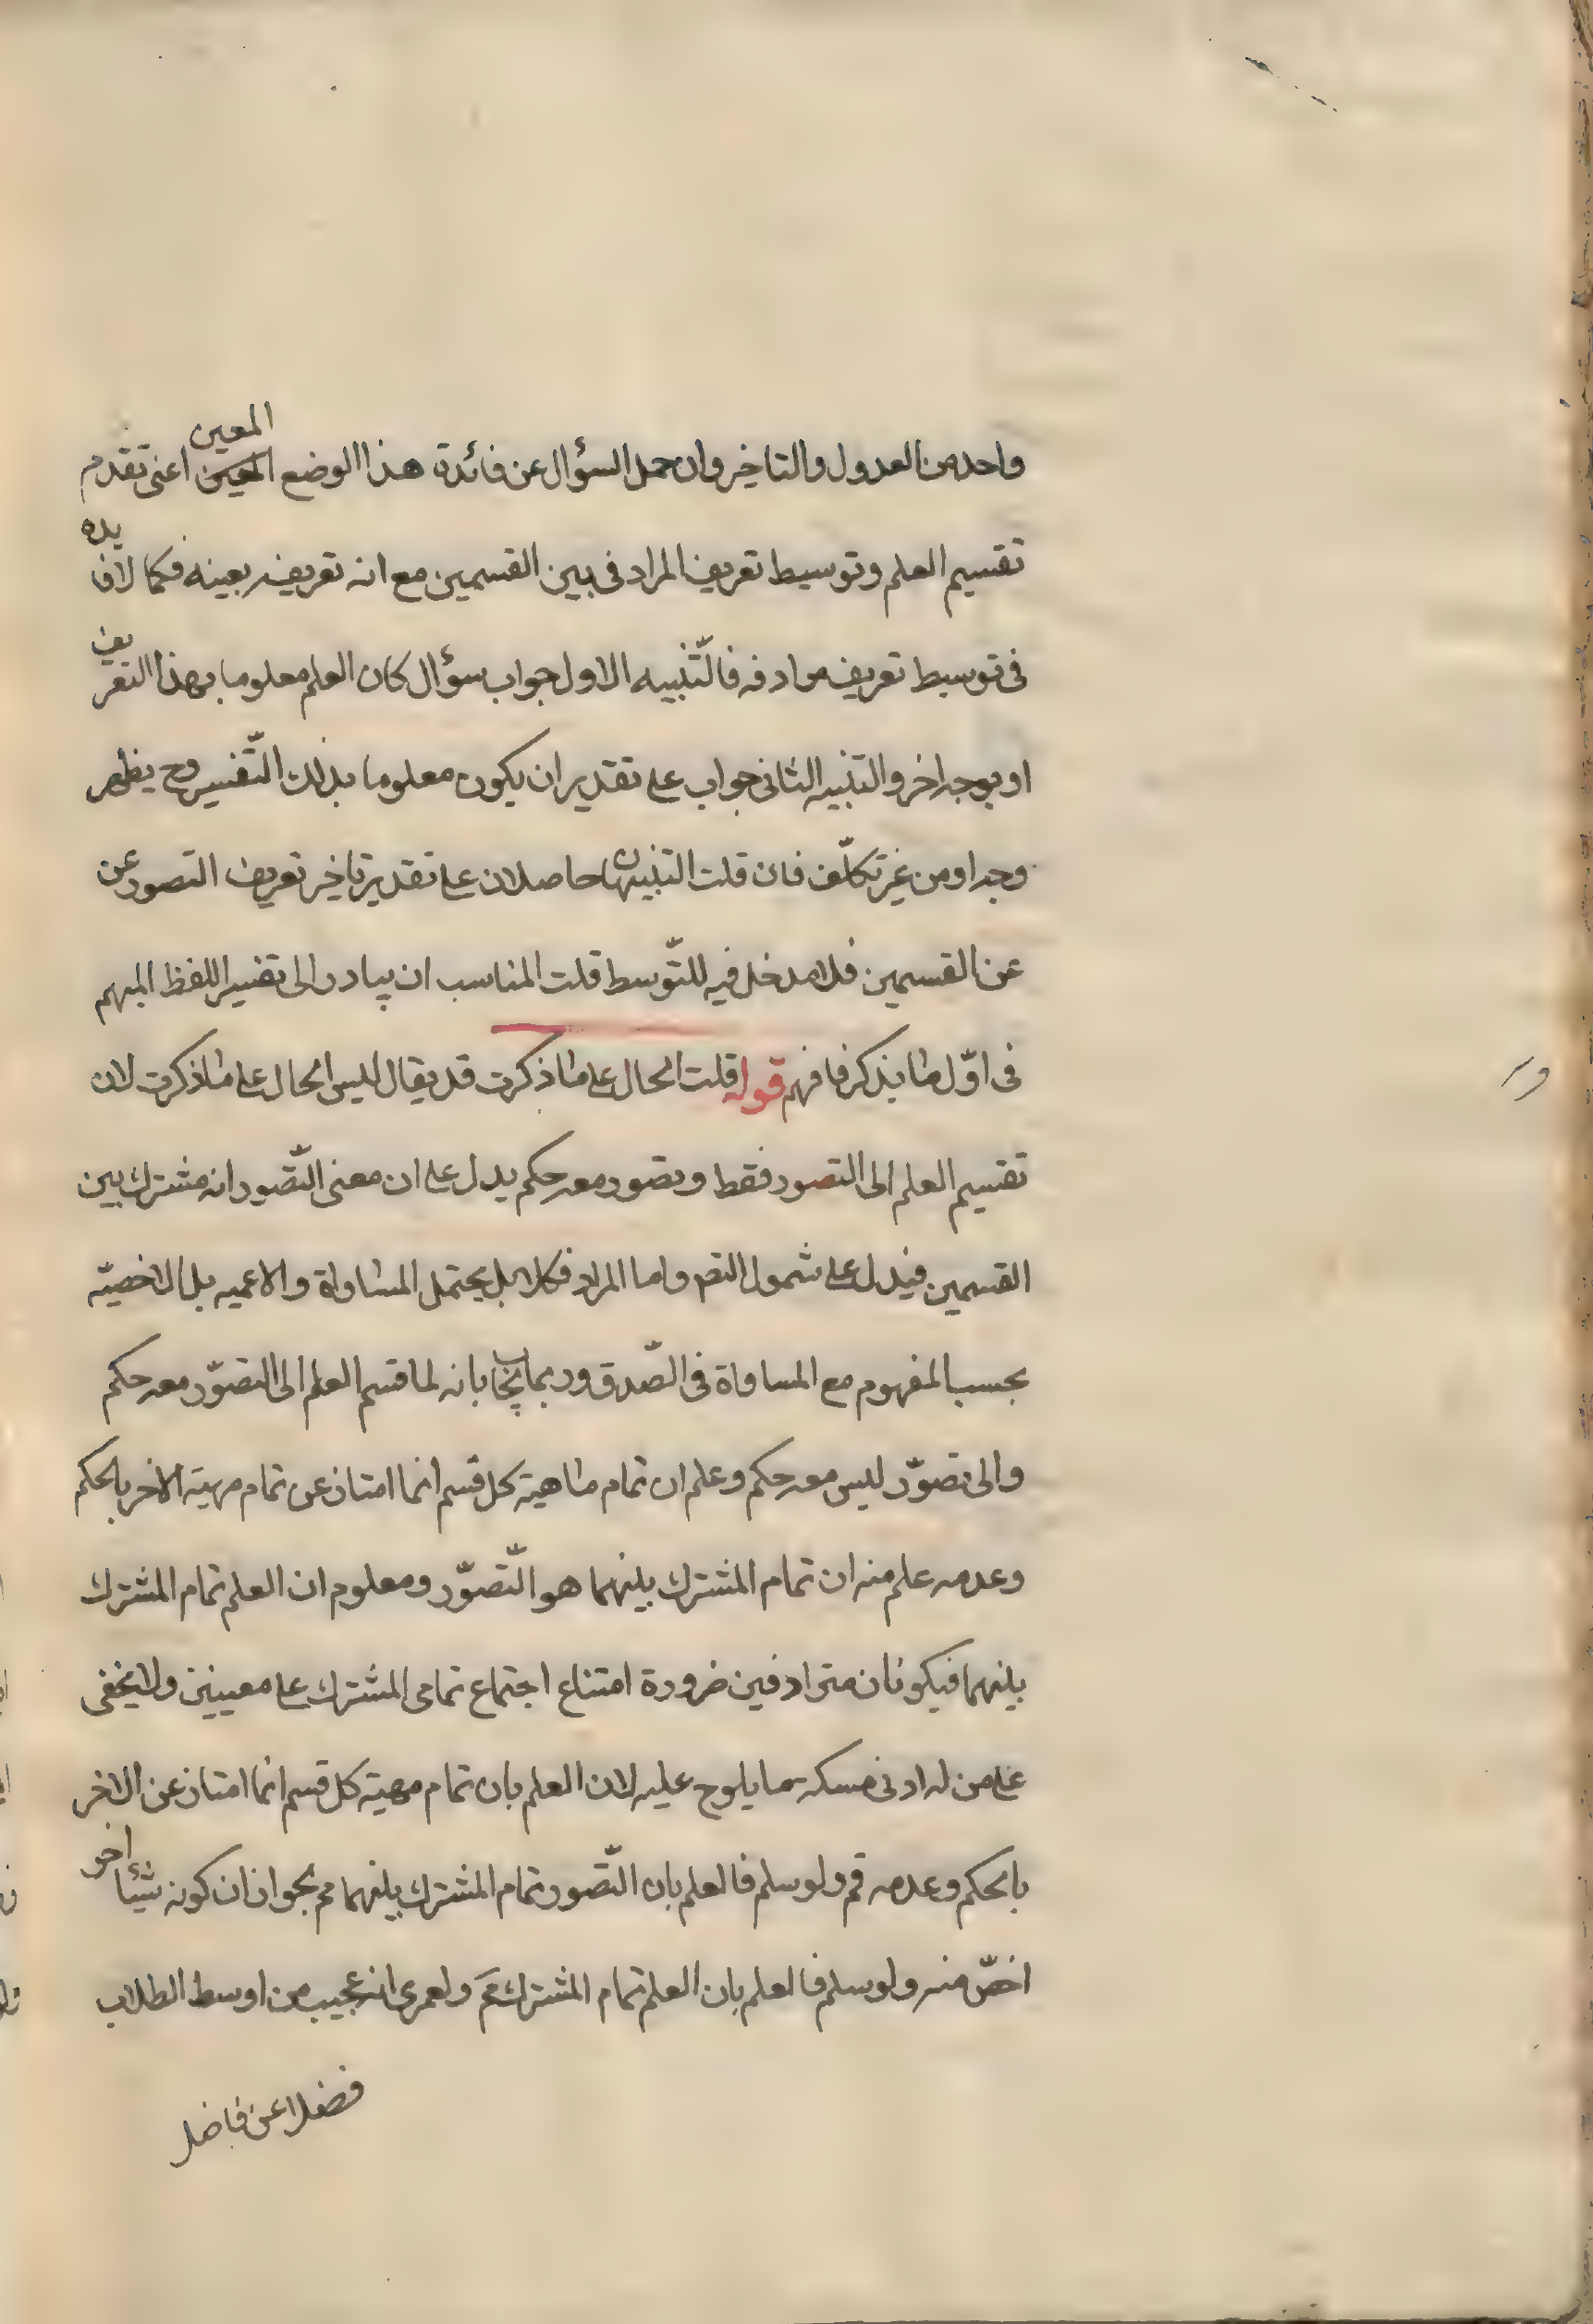 واحد من العدول والتاخير وان حمل السؤال عن فائدة هذا الوضع المعين اعنى تقدم
تقسيم العلم وتوسيط تعريف المرادف بين القسمين مع انه تعريفه بعينه فكما لا فايده
فى توسيط تعريف مرادفه فالتّنبيه الاول جواب سؤال كان العلم معلوما بهذا التعريف
او بوجه اخر والتنبيه الثانى جواب على تقدير ان يكون معلوما بذلك التّفسير وح يظهر
وجه او من غير تكلّف فان قلت التنبيهان حاصلان على تقدير تاخير تعريف التصور عن
عن القسمين فلا مدخل فيه للتّوسط قلت المناسب ان يبادر الى تفسير اللفظ المبهم
فى اوّل ما يذكر فافهم قوله قلت الحال على ما ذكرت قد يقال ليس الحال على ما ذكرت لان
تقسيم العلم الى التصور فقط وتصور معه حكم يدل على ان معنى التّصور انه مشترك بين
القسمين فيدل على شمول التصم واما المراد فكلا بل يحتمل المساواة والاعميه بل الاخصيّه
بحسب المفهوم مع المساواة فى الصّدق وربما يجاب بانه لما قسم العلم الى التصوّر معه حكم
والى تصوّر ليس معه حكم وعلم ان تمام ماهية كل قسم انما امتاز عن تمام مهية الاخر بالحكم
وعدمه علم منه ان تمام المشترك بينهما هو التّصوّر ومعلوم ان العلم تمام المشترك
بينهما فيكونان مترادفين ضرورة امتناع اجتماع تمامى المشترك على معيينين ولا يخفى
على من له ادنى مسكه مما يلوح عليه لان العلم بان تمام مهية كل قسم انما امتاز عن الاخر
بالحكم وعدمه قم ولو سلم فالعلم بان التّصور تمام المشترك بينهما مم بجواز ان كونه شيئا اخر
اخصّ منه ولو سلم فالعلم بان العلم تمام المشترك مَم ولعمرى انه عجيب من اوسط الطلاب
فضلا عن فاضل